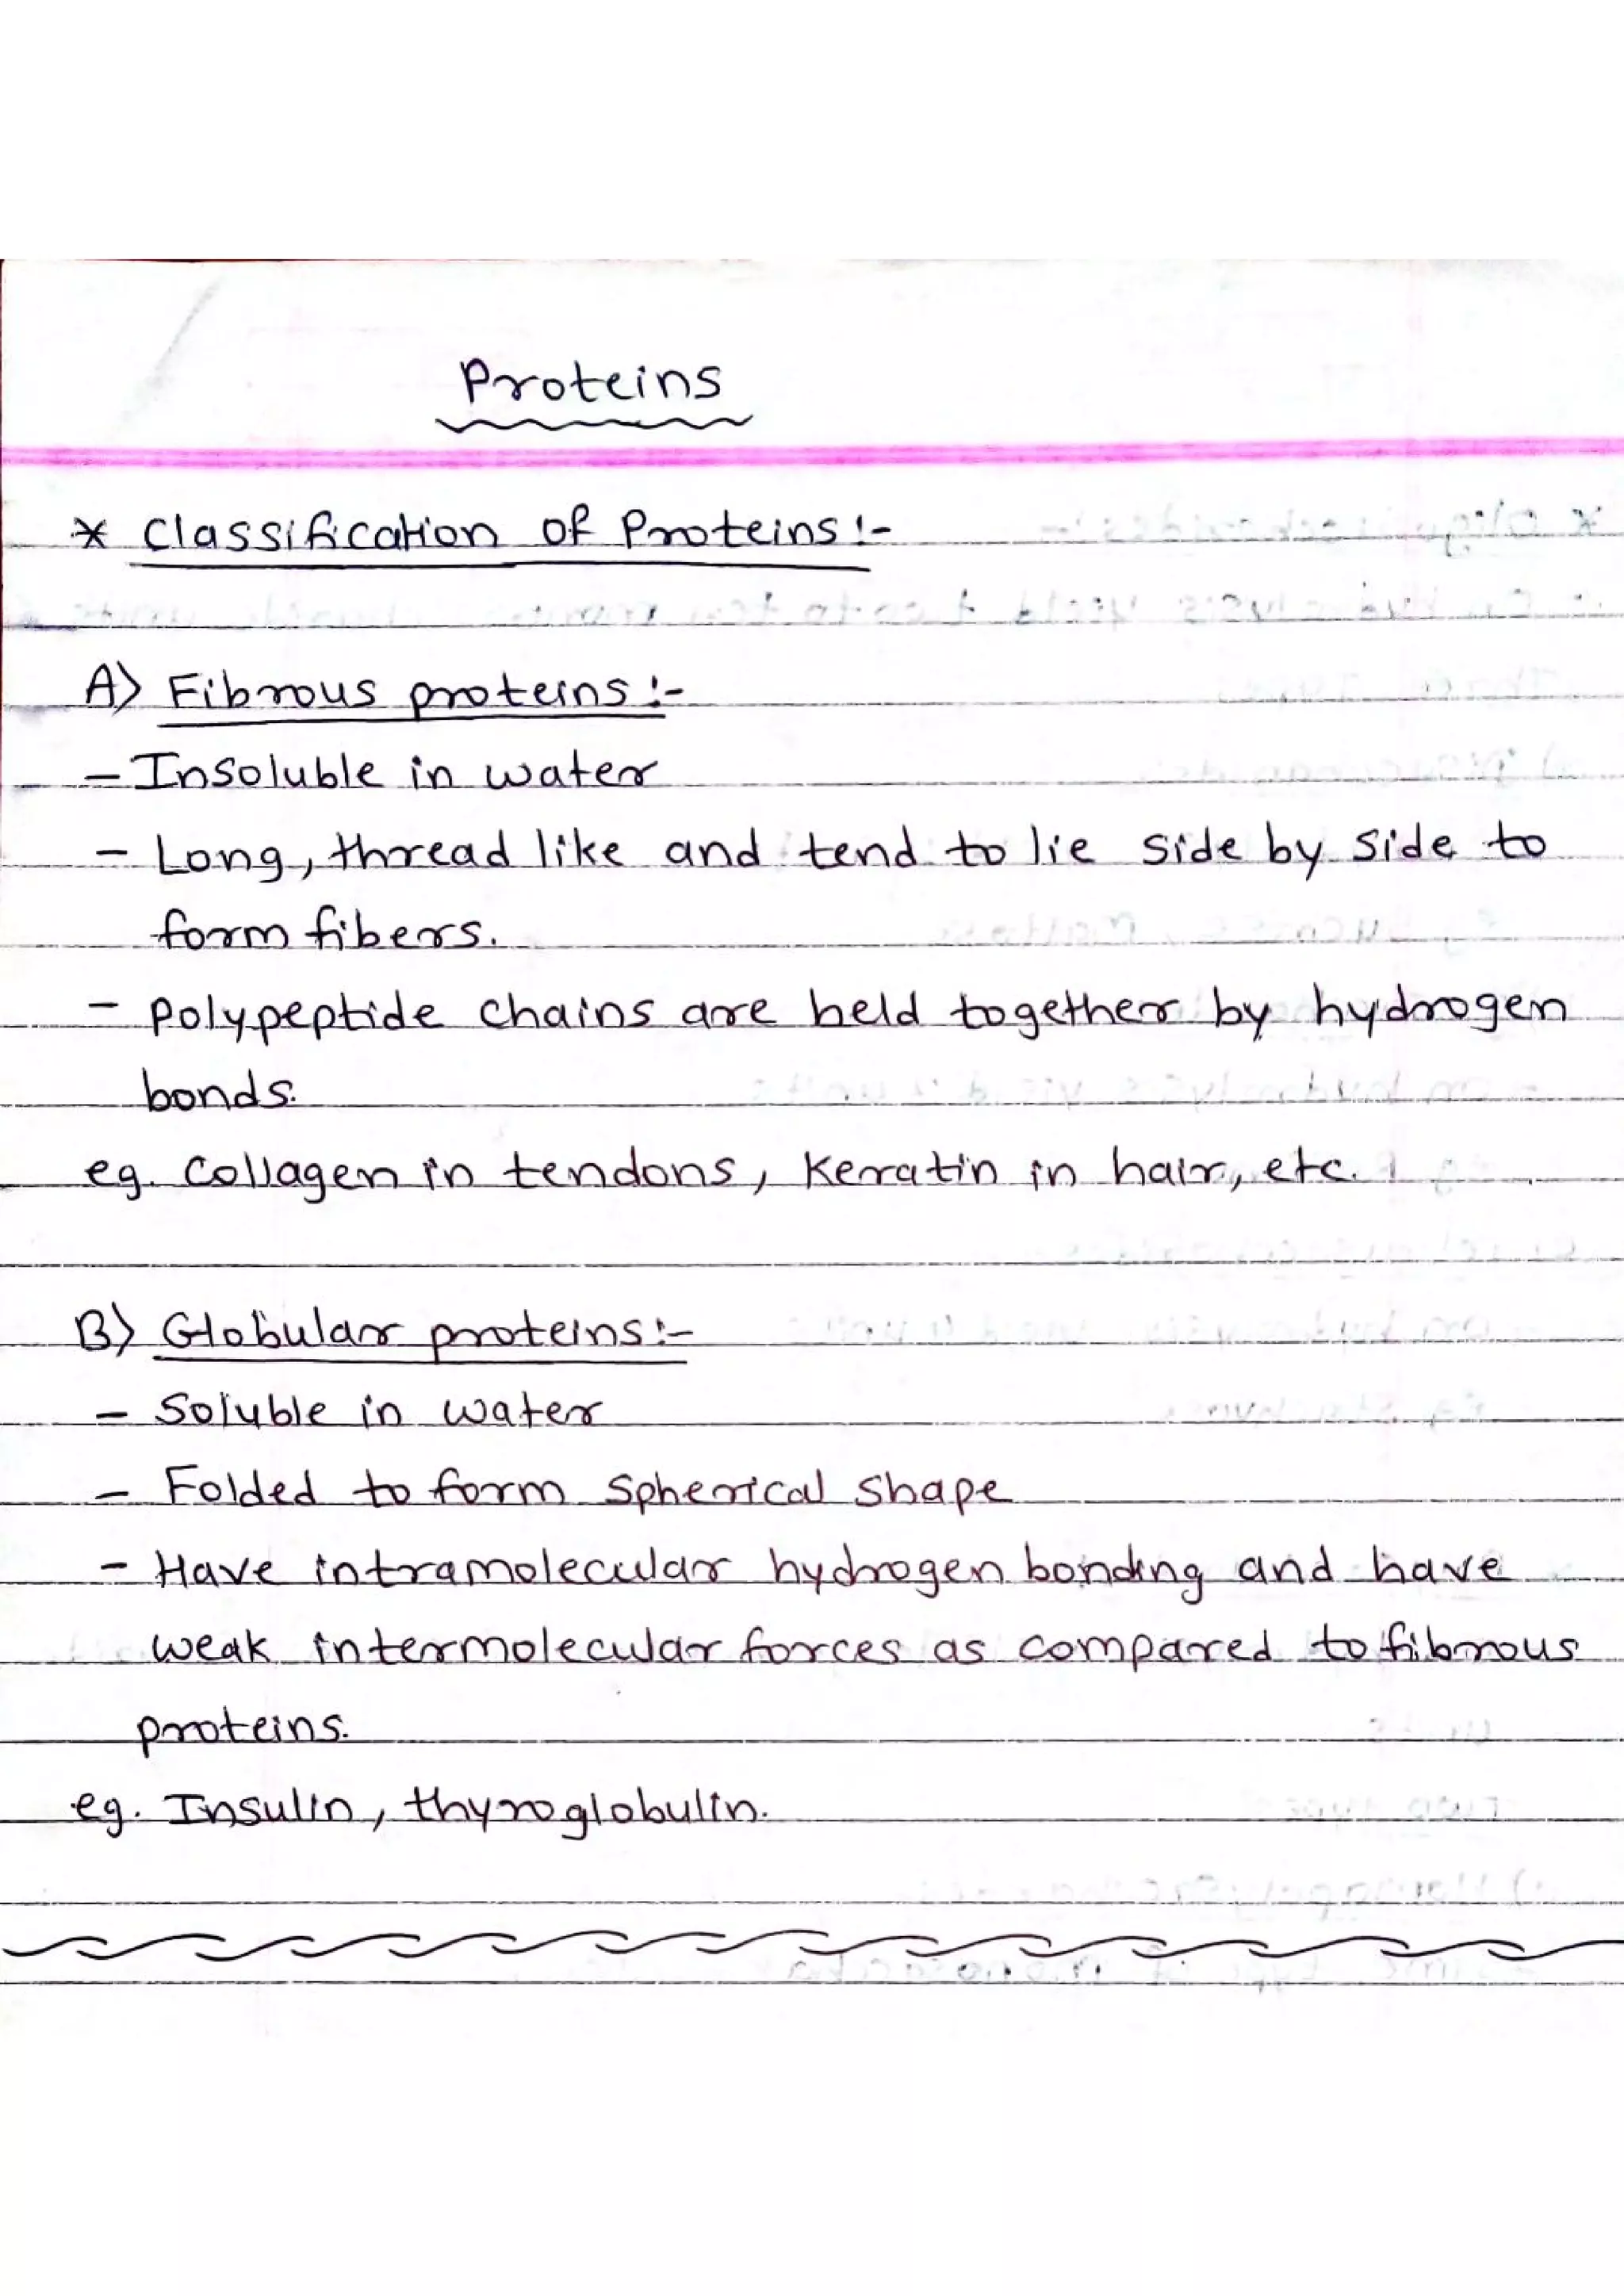 Proteins
* Classification of Proteins :-
A) Fibrous proteins :-
- Insoluble in water
- Long, thread like and tend to lie side by side to
form fibers.
- Polypeptide chains are held together by hydrogen
bonds.
eg. Collagen in tendons, Keratin in hair, etc.
B) Globular proteins :-
- Soluble in water
- Folded to form spherical shape
- Have intramolecular hydrogen bonding and have
weak intermolecular forces as compared to fibrous
proteins.
eg. Insulin, thyroglobulin.